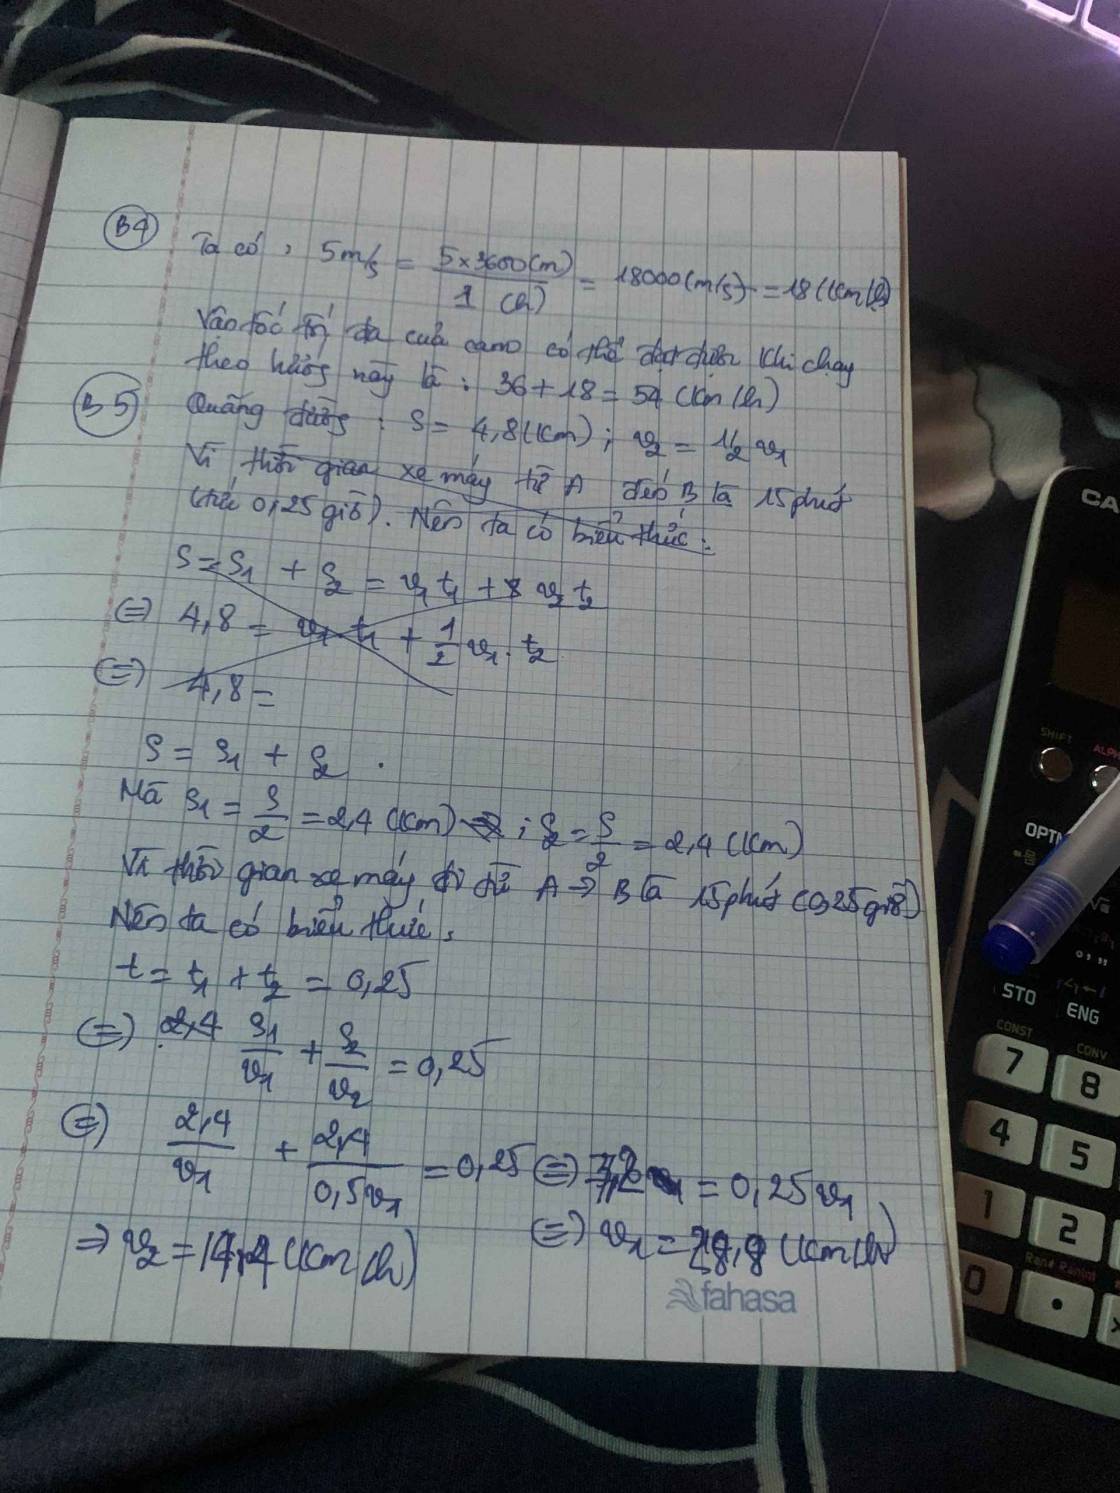 B4
Ta có : 5m/s = 5 x 3600 (m) / 1 (h) = 18000 (m/s) = 18 (km/h)
Vận tốc tối đa của cano có thể đạt được khi chạy
theo hướng này là : 36 + 18 = 54 (km/h)
B5
Quãng đường : S = 4,8 (km) ; v2 = 1/2 v1
Vì thời gian xe máy từ A đến B là 15 phút
(tức 0,25 giờ). Nên ta có biểu thức :
S = S1 + S2 = v1 t1 + v2 t2
⇔ 4,8 = v1 t1 + 1/2 v1 . t2
⇔ 4,8 =
S = S1 + S2 .
Mà S1 = S/2 = 2,4 (km) ; S2 = S/2 = 2,4 (km)
Vì thời gian xe máy đi từ A → B là 15 phút (0,25 giờ)
Nên ta có biểu thức :
t = t1 + t2 = 0,25
⇔ 2,4 S1/v1 + S2/v2 = 0,25
⇔ 2,4/v1 + 2,4/0,5v1 = 0,25 ⇔ 7,2 = 0,25 v1
⇔ v1 = 28,8 (km/h)
⇒ v2 = 14,4 (km/h)
fahasa
CA
SHIFT
ALPH
OPTN
STO
ENG
CONST
CONV
7
8
4
5
1
2
Ran# RanInt
0
.